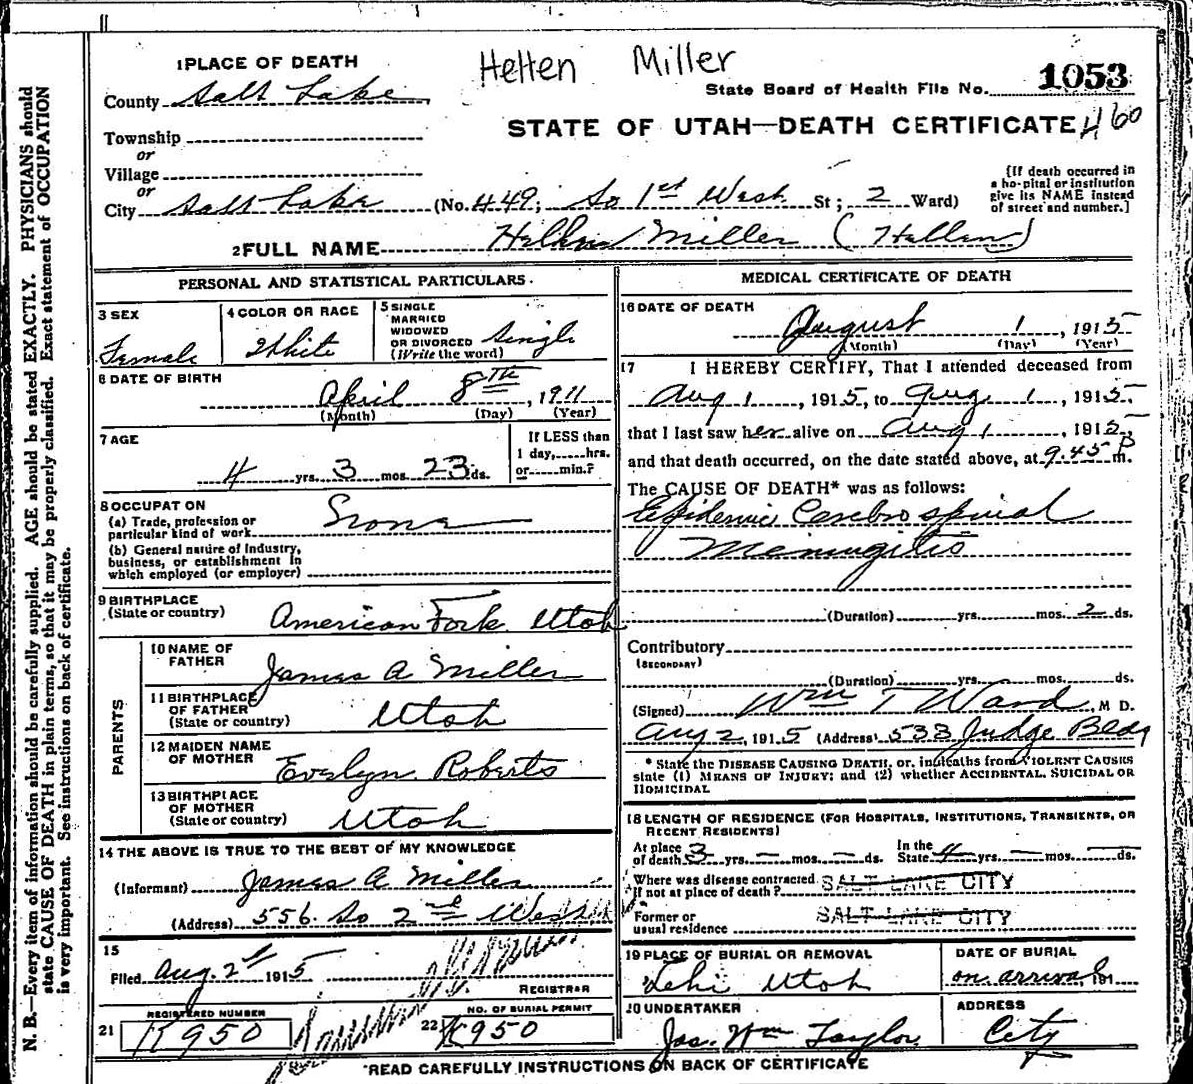 Hellen Miller
1 PLACE OF DEATH
County Salt Lake
State Board of Health File No. 1053
STATE OF UTAH—DEATH CERTIFICATE 460
Township
or
Village
or
City Salt Lake (No. 449; So 1st West St; 2 Ward)
[If death occurred in
a hospital or institution
give its NAME instead
of street and number.]
2 FULL NAME Miller (Hellen)
PERSONAL AND STATISTICAL PARTICULARS.
3 SEX
Female
4 COLOR OR RACE
White
5 SINGLE
MARRIED
WIDOWED
OR DIVORCED
(Write the word)
Single
6 DATE OF BIRTH
April 8TH, 1911
(Month) (Day) (Year)
7 AGE
4 yrs. 3 mos. 23 ds.
If LESS than
1 day, hrs.
or min.?
8 OCCUPATION
(a) Trade, profession or
particular kind of work
(b) General nature of Industry,
business, or establishment in
which employed (or employer)
9 BIRTHPLACE
(State or country)
American Fork Utah
PARENTS
10 NAME OF
FATHER
James A Miller
11 BIRTHPLACE
OF FATHER
(State or country)
Utah
12 MAIDEN NAME
OF MOTHER
Evelyn Roberts
13 BIRTHPLACE
OF MOTHER
(State or country)
Utah
14 THE ABOVE IS TRUE TO THE BEST OF MY KNOWLEDGE
(Informant) James A Miller
(Address) 556. So 2nd West
15
Filed Aug. 2d 1915
REGISTRAR
21 REGISTERED NUMBER
K950
22 NO. OF BURIAL PERMIT
K950
MEDICAL CERTIFICATE OF DEATH
16 DATE OF DEATH
August 1, 1915
(Month) (Day) (Year)
17 I HEREBY CERTIFY, That I attended deceased from
Aug 1, 1915, to Aug. 1, 1915,
that I last saw her alive on Aug 1, 1915,
and that death occurred, on the date stated above, at 9.45 P m.
The CAUSE OF DEATH* was as follows:
Epidemic Cerebro spinal
Meningitis
(Duration) yrs. mos. 2 ds.
Contributory
(SECONDARY)
(Duration) yrs. mos. ds.
(Signed) Wm T Ward, M D.
Aug 2, 1915 (Address) 533 Judge Bldg
* State the DISEASE CAUSING DEATH, or, in deaths from VIOLENT CAUSES
state (1) MEANS OF INJURY; and (2) whether ACCIDENTAL, SUICIDAL OR
HOMICIDAL
18 LENGTH OF RESIDENCE (FOR HOSPITALS, INSTITUTIONS, TRANSIENTS, OR
RECENT RESIDENTS)
At place
of death 3 yrs. — mos. — ds.
In the
State 4 yrs. — mos. — ds.
Where was disease contracted
If not at place of death? SALT LAKE CITY
Former or
usual residence SALT LAKE CITY
19 PLACE OF BURIAL OR REMOVAL
Lehi Utah
DATE OF BURIAL
on arrival, 191
20 UNDERTAKER
Jas. Wm Taylor
ADDRESS
City
READ CAREFULLY INSTRUCTIONS ON BACK OF CERTIFICATE
N. B.—Every item of information should be carefully supplied. AGE should be stated EXACTLY. PHYSICIANS should
state CAUSE OF DEATH in plain terms, so that it may be properly classified. Exact statement of OCCUPATION
is very important. See instructions on back of certificate.